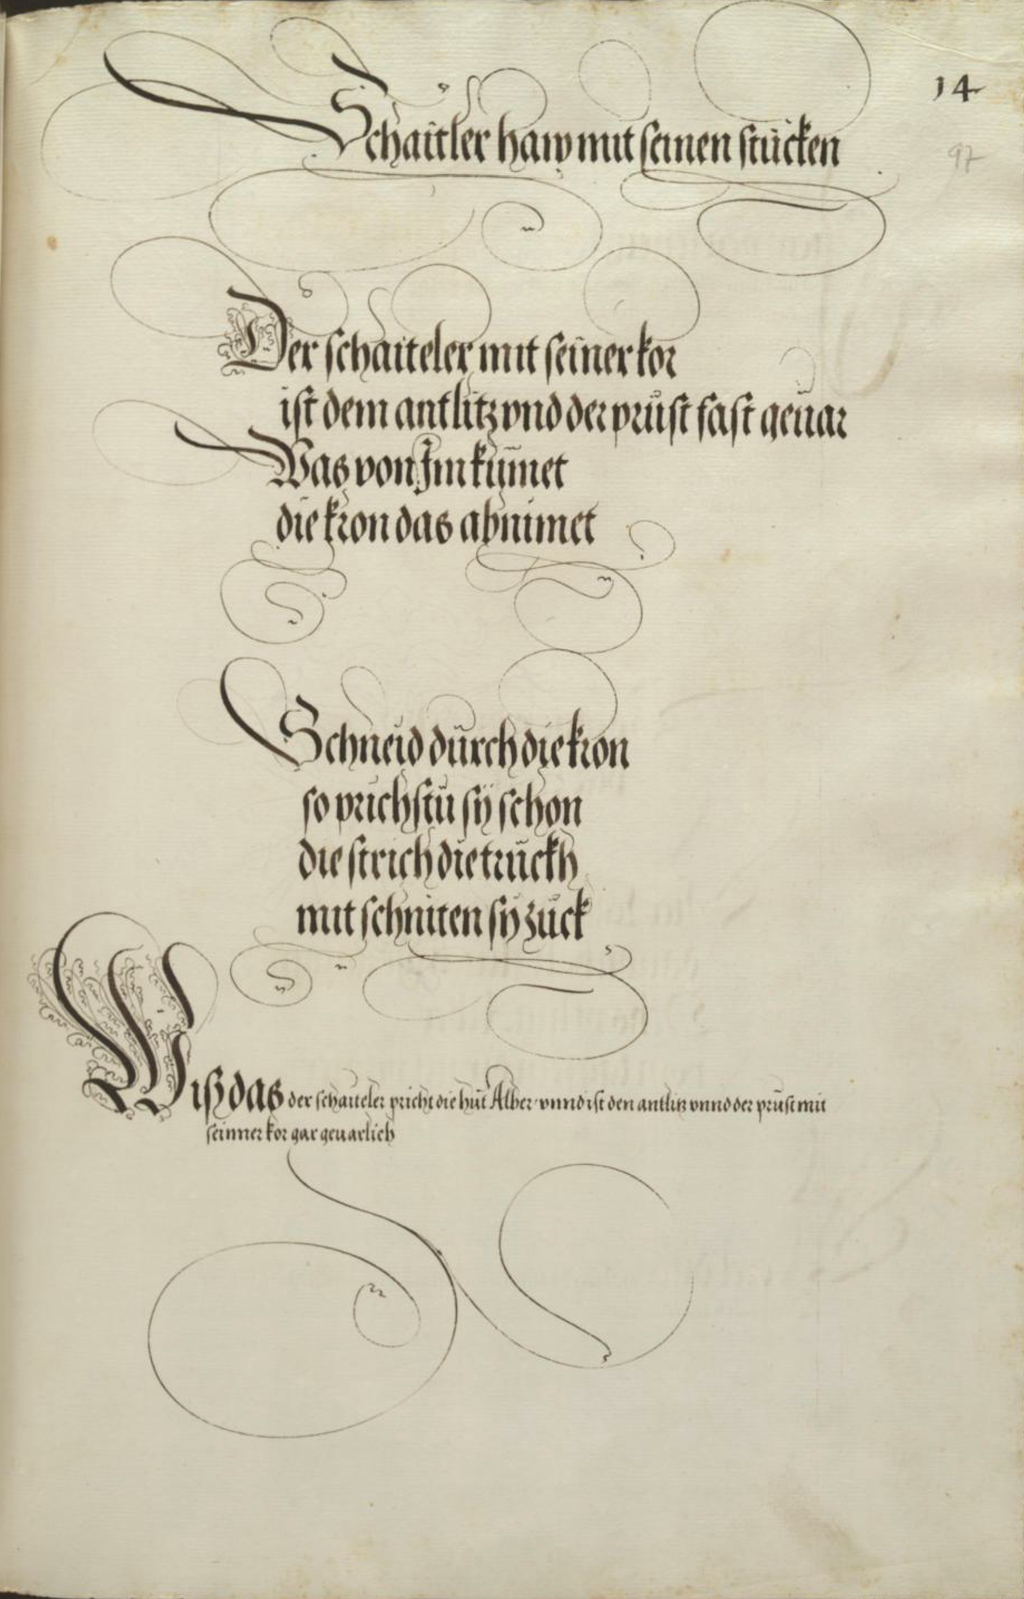 14
97
Schaitler haw mit seinen stücken
Der schaiteler mit seiner kor
ist dem antlitz vnd der prüst fast geuar
Was von Im kümet
die kron das abnimet
Schneid dürch die kron
so prichstu sÿ schon
die strich die trückh
mit schniten sÿ zück
Wiß das der schaiteler pricht die hüt Alber vnnd ist den antlitz vnnd der prüst mit
seinner kor gar geuarlich